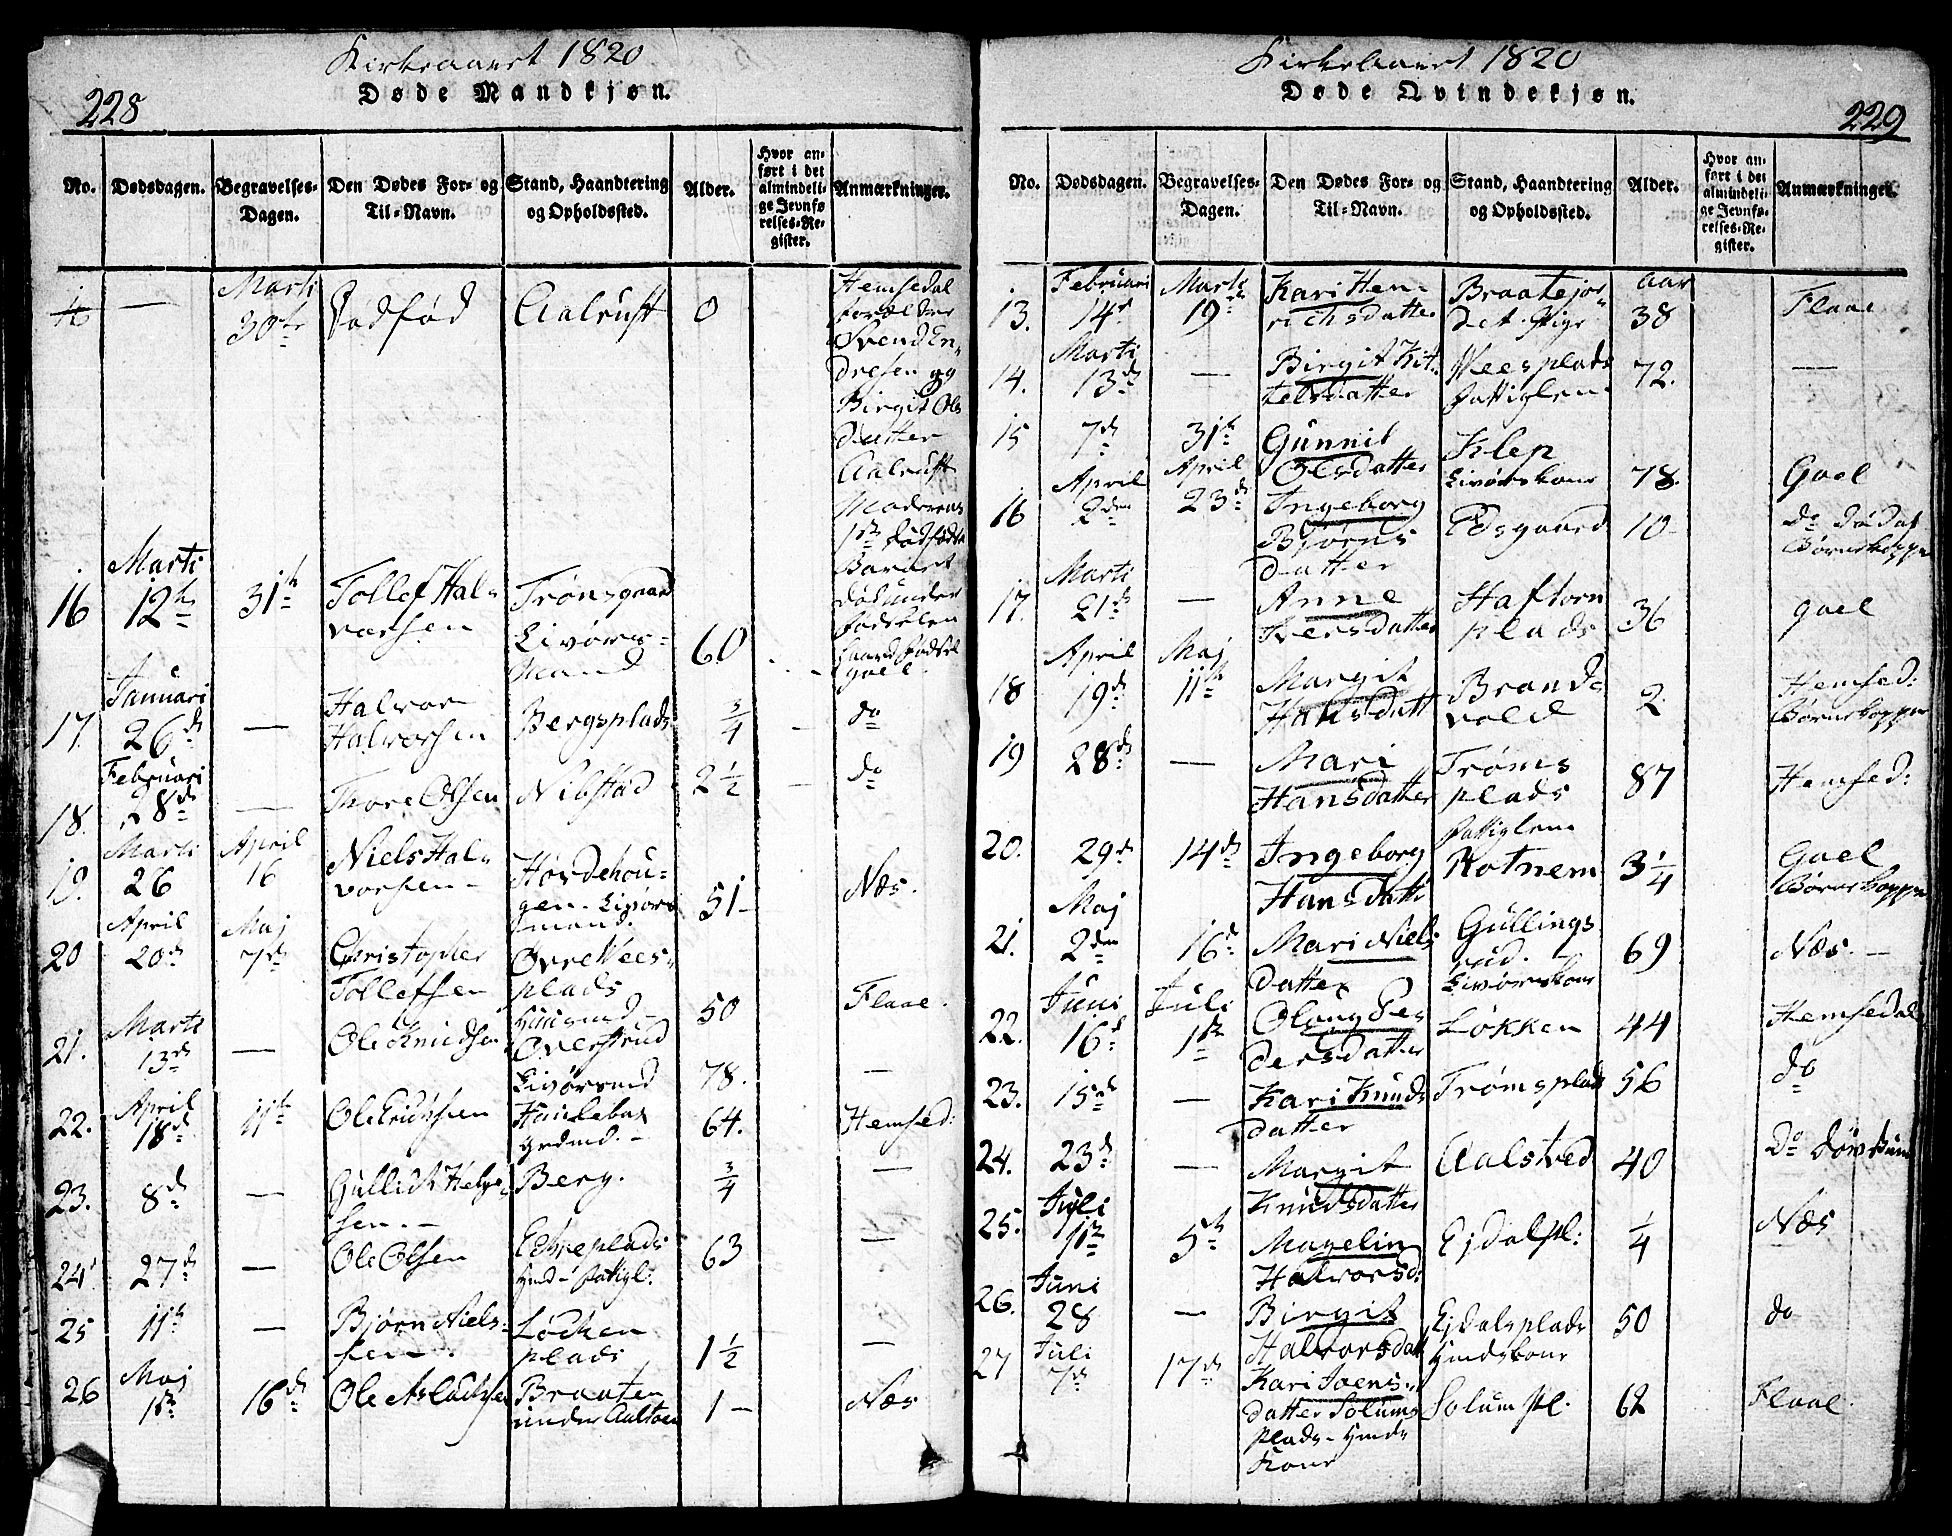 Kirkeaaret 1820
Døde Mandkjøn.
228
No. Dødsdagen. Begravelses-Dagen. Den Dødes For- og Til-Navn. Stand, Haandtering og Opholdssted. Alder. Hvor anført i det almindelige Jevnførelses-Register. Anmærkninger.
— Marti 30te Dødfød Aalrust 0 Hemsedal
forældre
Svend En-
dresen og
Birgit Ols
datter
Aalrust
Moderens
1ste dødfødte
Barnet
død under
fødselen
haard fødsel
16 Marti 12te 31te Tollef Hal-
vorsen Trønsgaard
Livøres-
Mand 60 goel
17. Januari 26de — Halvor
Halvorsen Bergsplads 3/4 do
18. Februari 28de — Thore Olsen Nibstad 2 1/2 do
19. Marti 26 April 16 Niels Hal-
vorsen - Hørdehou-
gen. Livørs
mand. 51 - Næs.
20 April 20de Maj 7de Christopher
Tollefsen Øvre Vees-
plads
Huusmd - 50 Flaae.
21. Marti 13de — Ole Knudsen Overstrud
Livørsmd 78. —
22. April 18de 11te Ole Erichsen
grdmd. - 64. Hemsed:
23. 8de — Gullich Helge-
sen. - Berg. 3/4 —
24 27de — Ole Olsen
Hmd - fattigl: 63 —
25 11te — Bjørn Niels-
sen. Løcken
plads 1 1/2 —
26 Maj 1ste 16de Ole Aslachsen Braaten
under 1 — Næs
Kirkeaaret 1820
Døde Qvindekjøn.
229
No. Dødsdagen. Begravelses-Dagen. Den Dødes For- og Til-Navn. Stand, Haandtering og Opholdssted. Alder. Hvor anført i det almindelige Jevnførelses-Register. Anmærkninger.
13. Februari 14de Marti 19de Kari Hen-
richsdatter Braatejor-
det. Pige aar 38 Flaae
14. Marti 13de — Birgit Kit-
telsdatter Veesplads
fattiglem 72. —
15 7de 31te Gunnil
Olsdatter Klep
Livørskone 78. Goel
16 April 2den April 23de Ingeborg
Bjørns
datter Edsgaard 10 - do død af
Børnekopper
17. Marti 21de — Anne
Iversdatter Haftorn
plads 36 goel
18 April 19de Maj 11te Margit
Hansdatt Brand-
vold 2. Hemsed:
Børnekopper
19 28de — Mari
Hansdatter Trøms
plads
fattiglem 87 Hemsed:
20. 29de 14de Ingeborg
Hansdatt Rotnem 3 1/4 Goel
Børnekopper
21. Maj 2den 16de Mari Niels
datter Gullings
rud. -
Livørskone 69 Næs. -
22. Juni 16de Juli 1ste Olaug Pe-
dersdatter Løkken 44 Hemsedal
23. 15de — Kari Knuds
datter Trømsplads 56 do
24. 23de — Margit
Knudsdatter Aalsted 40 do
25. Juli 1ste 5te Magelin
Halvorsd: Ejdalspl: 1/4 Næs
26. Juni 28 — Birgit
Halvorsdatt Ejdalsplads
Hmdskone 50 do
27 Juli 7de 17de Kari Joens-
datter Solums
plads - Hmds
Kone Solumspl. 62 Flaae.